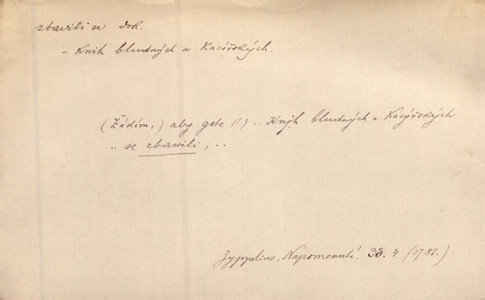 zbaviti se dok.
- Knih bludných a Kacířských.
(Žádím,) aby gste (!) .. Knjh bludných a Kacýřských
.. se zbawili, ..
Zyppelius, Napomenutí. 33. 4 (1781.)